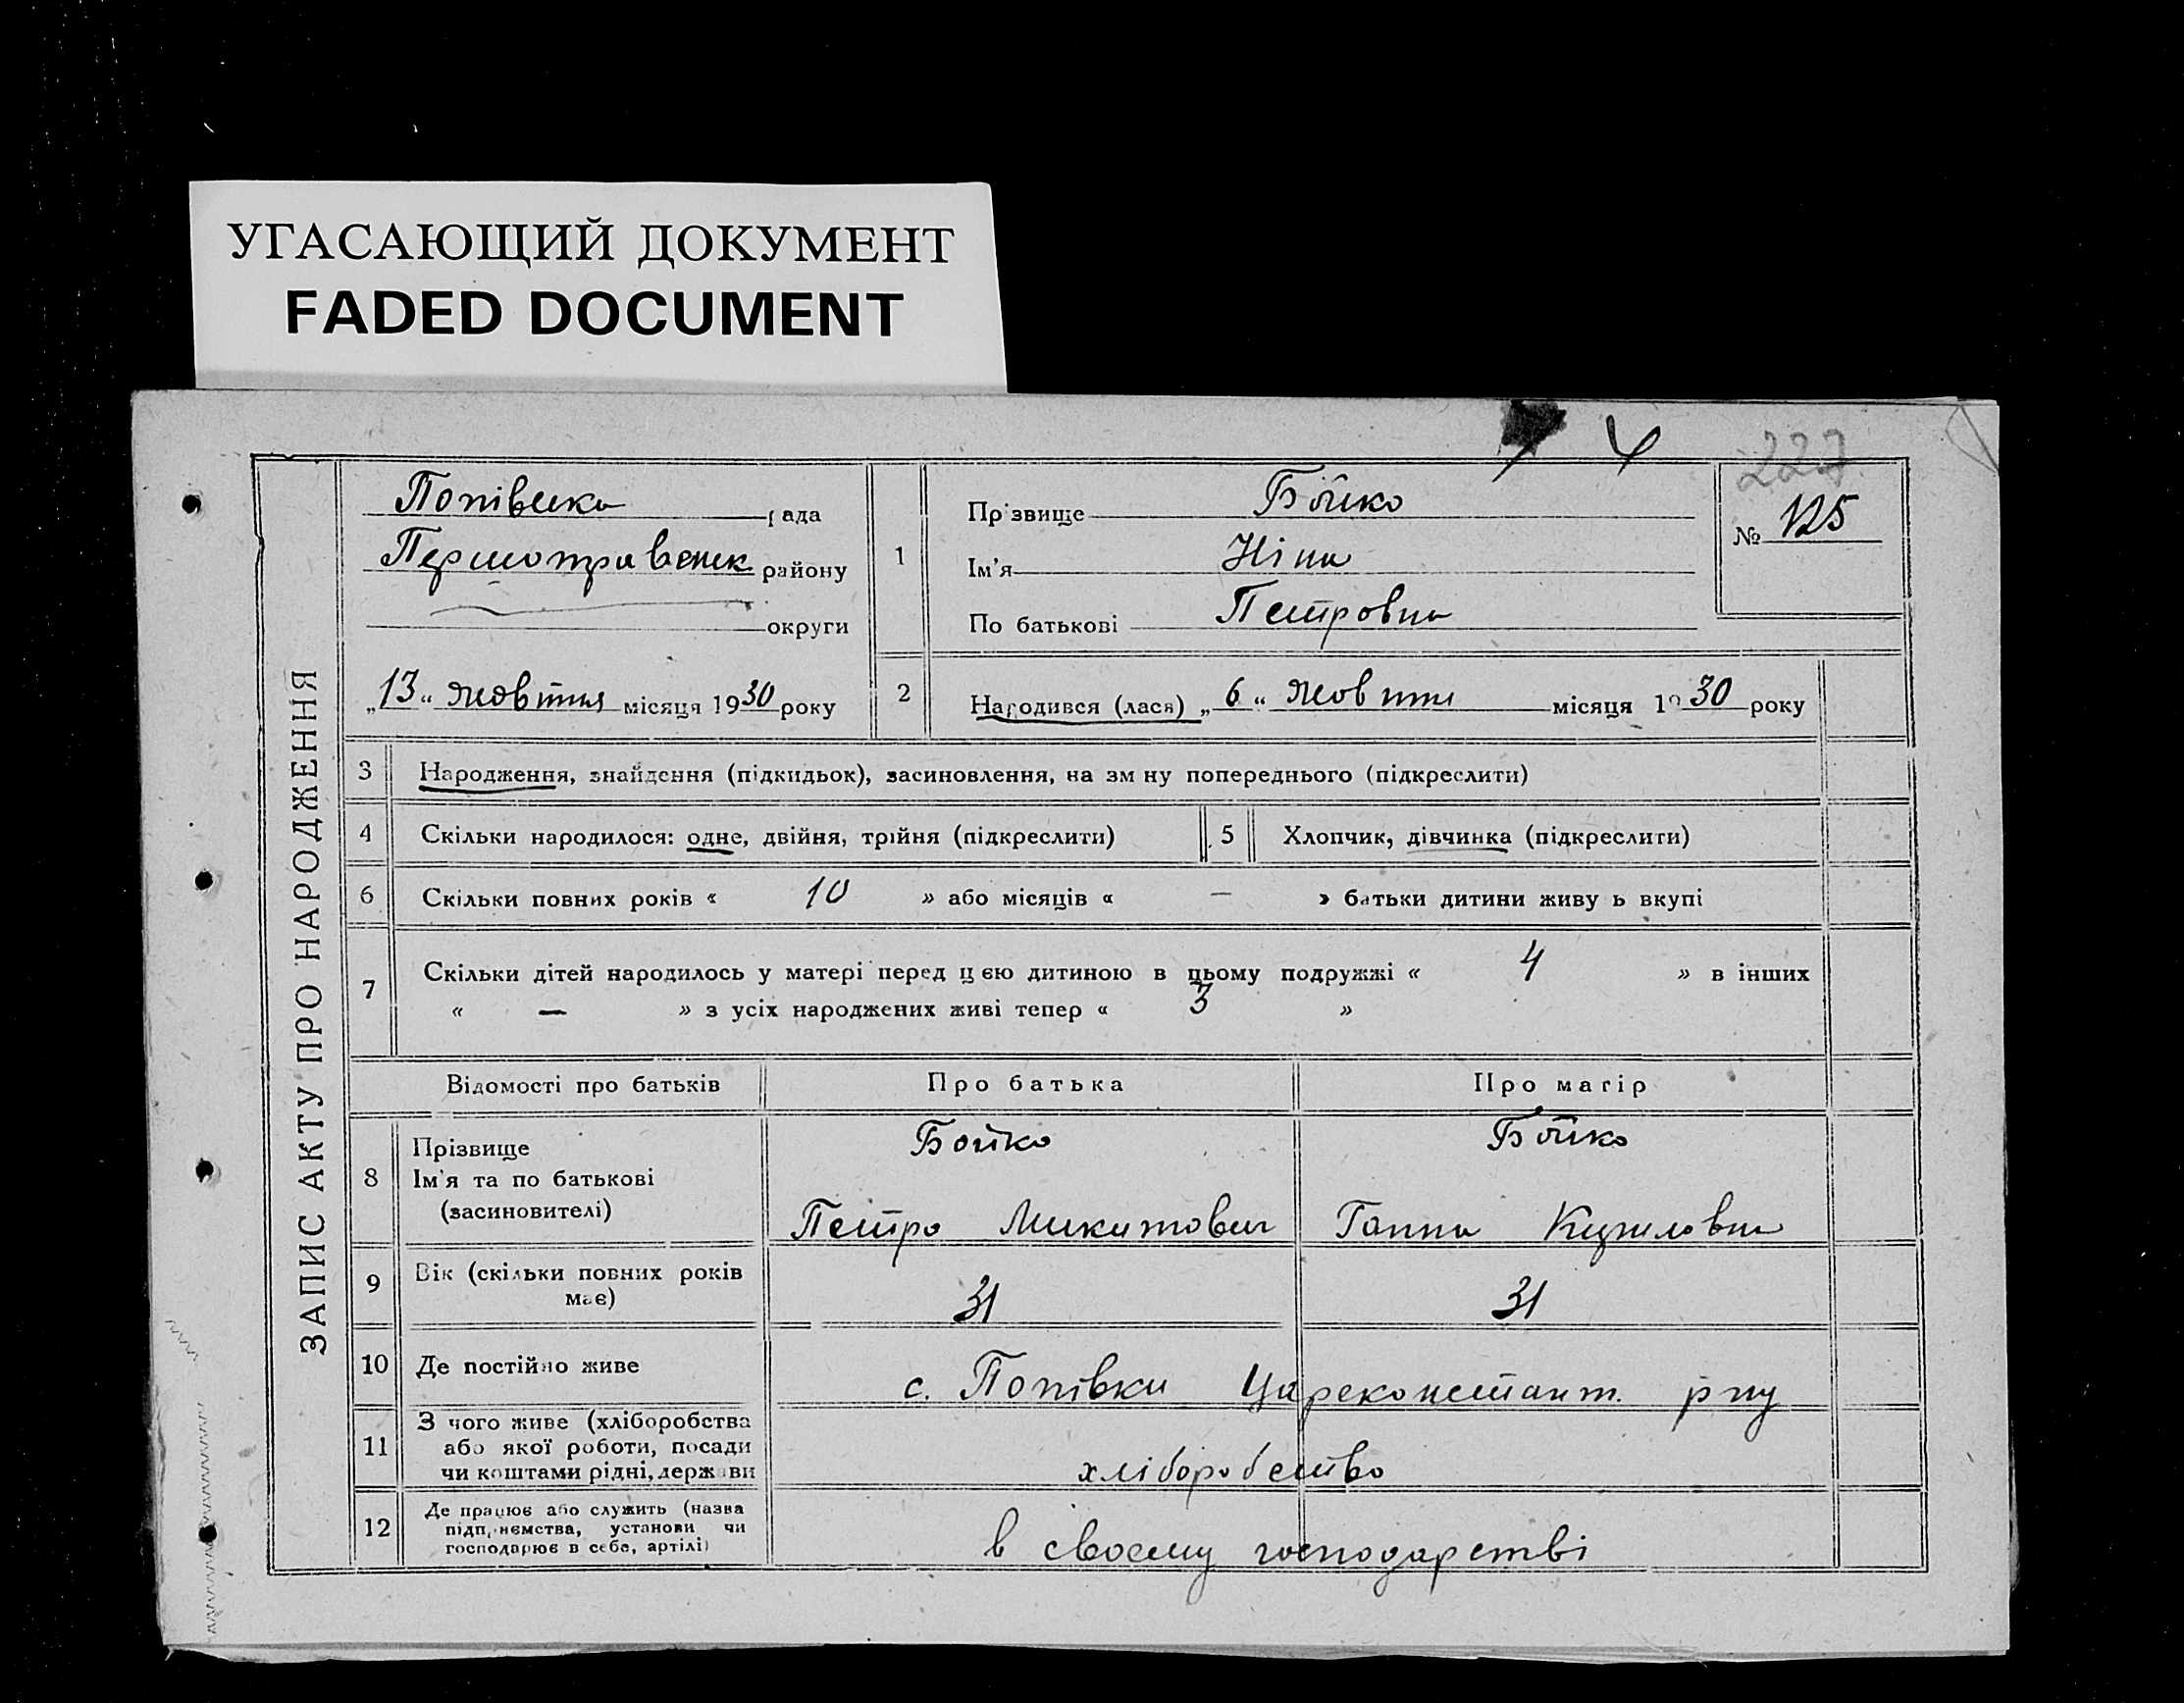 УГАСАЮЩИЙ ДОКУМЕНТ
FADED DOCUMENT
227
ЗАПИС АКТУ ПРО НАРОДЖЕННЯ
Попівська рада
Першотравенск району
округи
„13“ жовтня місяця 1930 року
1
Прізвище Бойко
Ім'я Ніна
По батькові Петровна
№ 125
2 Народився (лася) „6“ жовтня місяця 1930 року
3 Народження, знайдення (підкидьок), засиновлення, на зм ну попереднього (підкреслити)
4 Скільки народилося: одне, двійня, трійня (підкреслити) 5 Хлопчик, дівчинка (підкреслити)
6 Скільки повних років « 10 » або місяців « — » батьки дитини живу ь вкупі
7 Скільки дітей народилось у матері перед цією дитиною в цьому подружжі « 4 » в інших
« — » з усіх народжених живі тепер « 3 »
Відомості про батьків Про батька Про матір
8 Прізвище Бойко Бойко
Ім'я та по батькові
(засиновителі) Петро Микитович Ганна Кириловна
9 Вік (скільки повних років
має) 31 31
10 Де постійно живе с. Попівки Цареконстант. р-ну
11 З чого живе (хліборобства
або якої роботи, посади
чи коштами рідні, держави хліборобство
12 Де працює або служить (назва
підприємства, установи чи
господарює в себе, артілі) в своєму господарстві